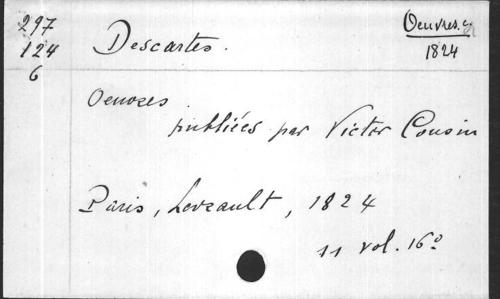 297
124
6
Descartes.
Oeuvres.
1824
Oeuvres
publiées par Victor Cousin
Paris, Levrault, 1824
11 vol. 16º